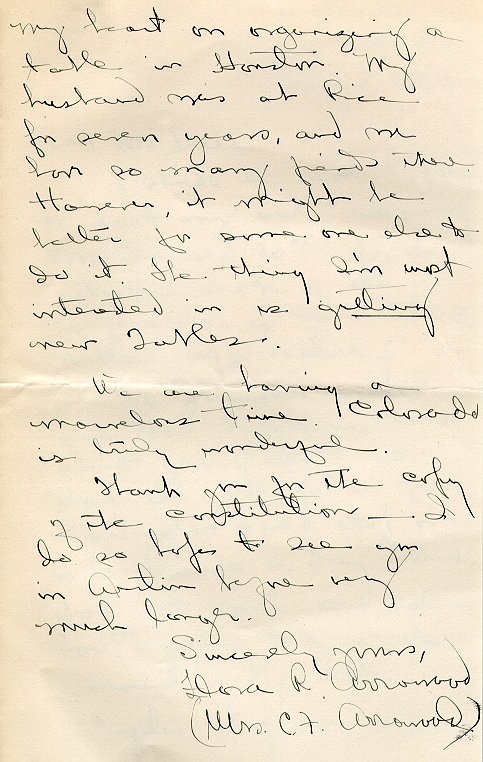 my heart on organizing a
table in Houston. My
husband was at Rice
for seven years, and we
have so many friends there.
However, it might be
better for some one else to
do it. The thing I'm most
interested in is getting
new Tables.
We are having a
marvelous time. Colorado
is truly wonderful.
Thank you for the copy
of the constitution — I
do so hope to see you
in Austin before very
much longer.
Sincerely yours,
Flora R. Arrowood
(Mrs. C. F. Arrowood)